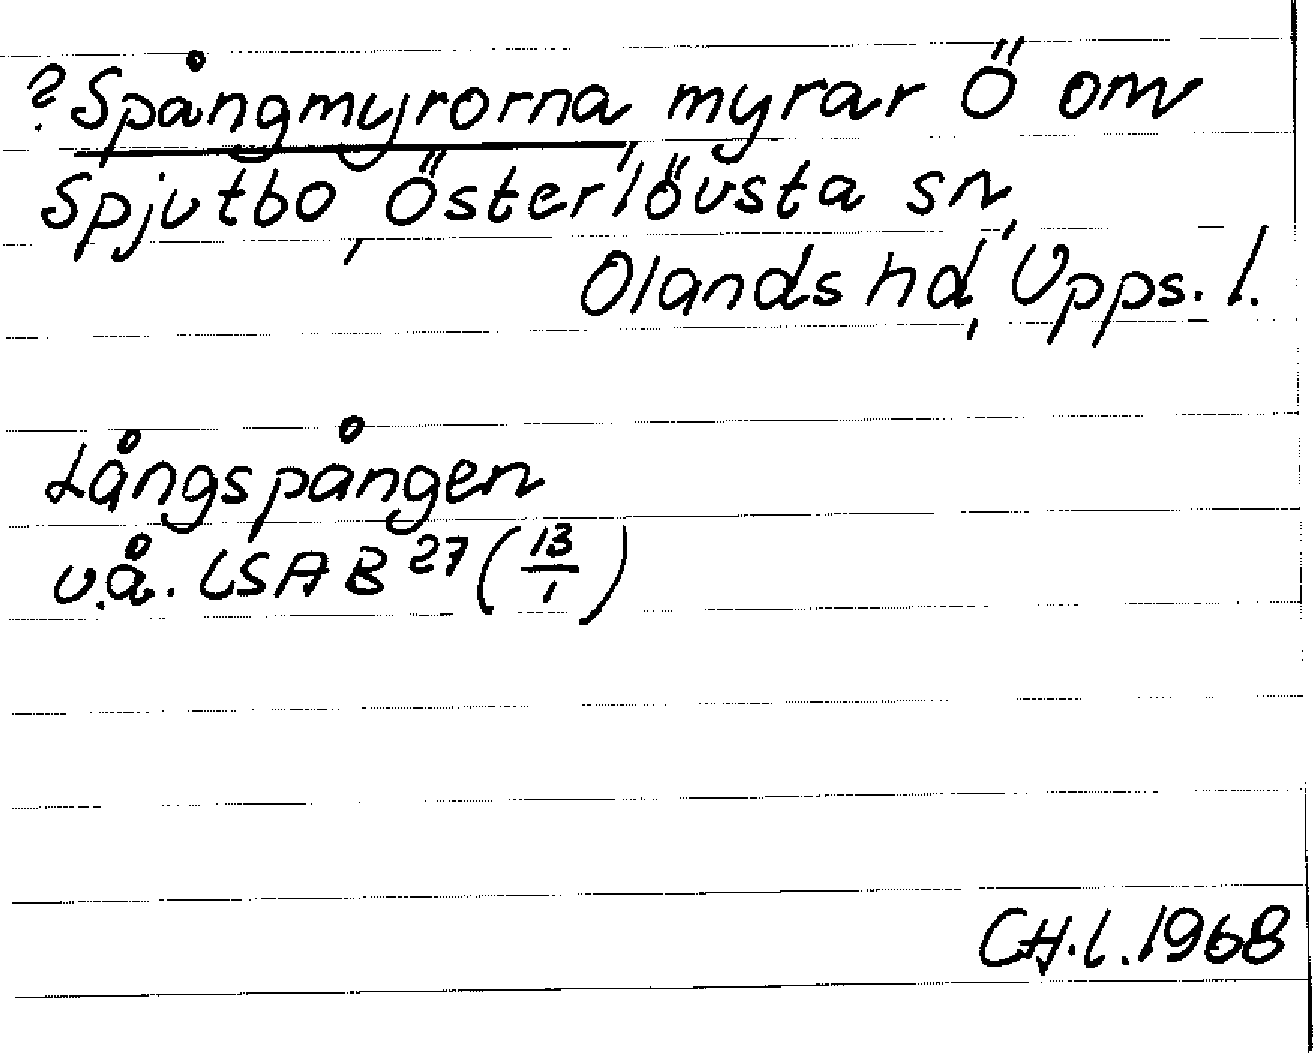 ? Spångmyrorna, myrar Ö om
Spjutbo, Österlövsta sn,
Olands hd, Upps. l.
Långspången
u.å. LSA B 27 (13/1)
CH.L. 1968